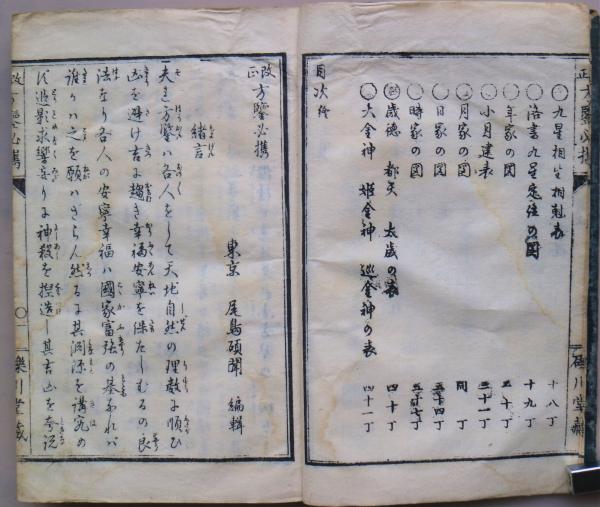 目次終
九星相生相剋表 十八丁
洛書九星定位の図 十九丁
年家の図 三十丁
小月建表 三十一丁
月家の図 同丁
日家の図
時家の図
歳徳 都天 太歳の表 四十丁
大金神 姫金神 巡金神の表 四十一丁
改正 方鑒必携
東京 尾島碩聞 編輯
緒言
夫き方鑒ハ各人をして天地自然の理数に順ひ
凶を避け吉に趨き幸福安寧を保たしむるの良
法なり各人の安寧幸福ハ國家富強の基なれバ
誰りハ之を願ハざらん然るに其淵源を講究め
ず追影求響妄りに神殺を捏造し其玄凶を妄説
樂川堂蔵